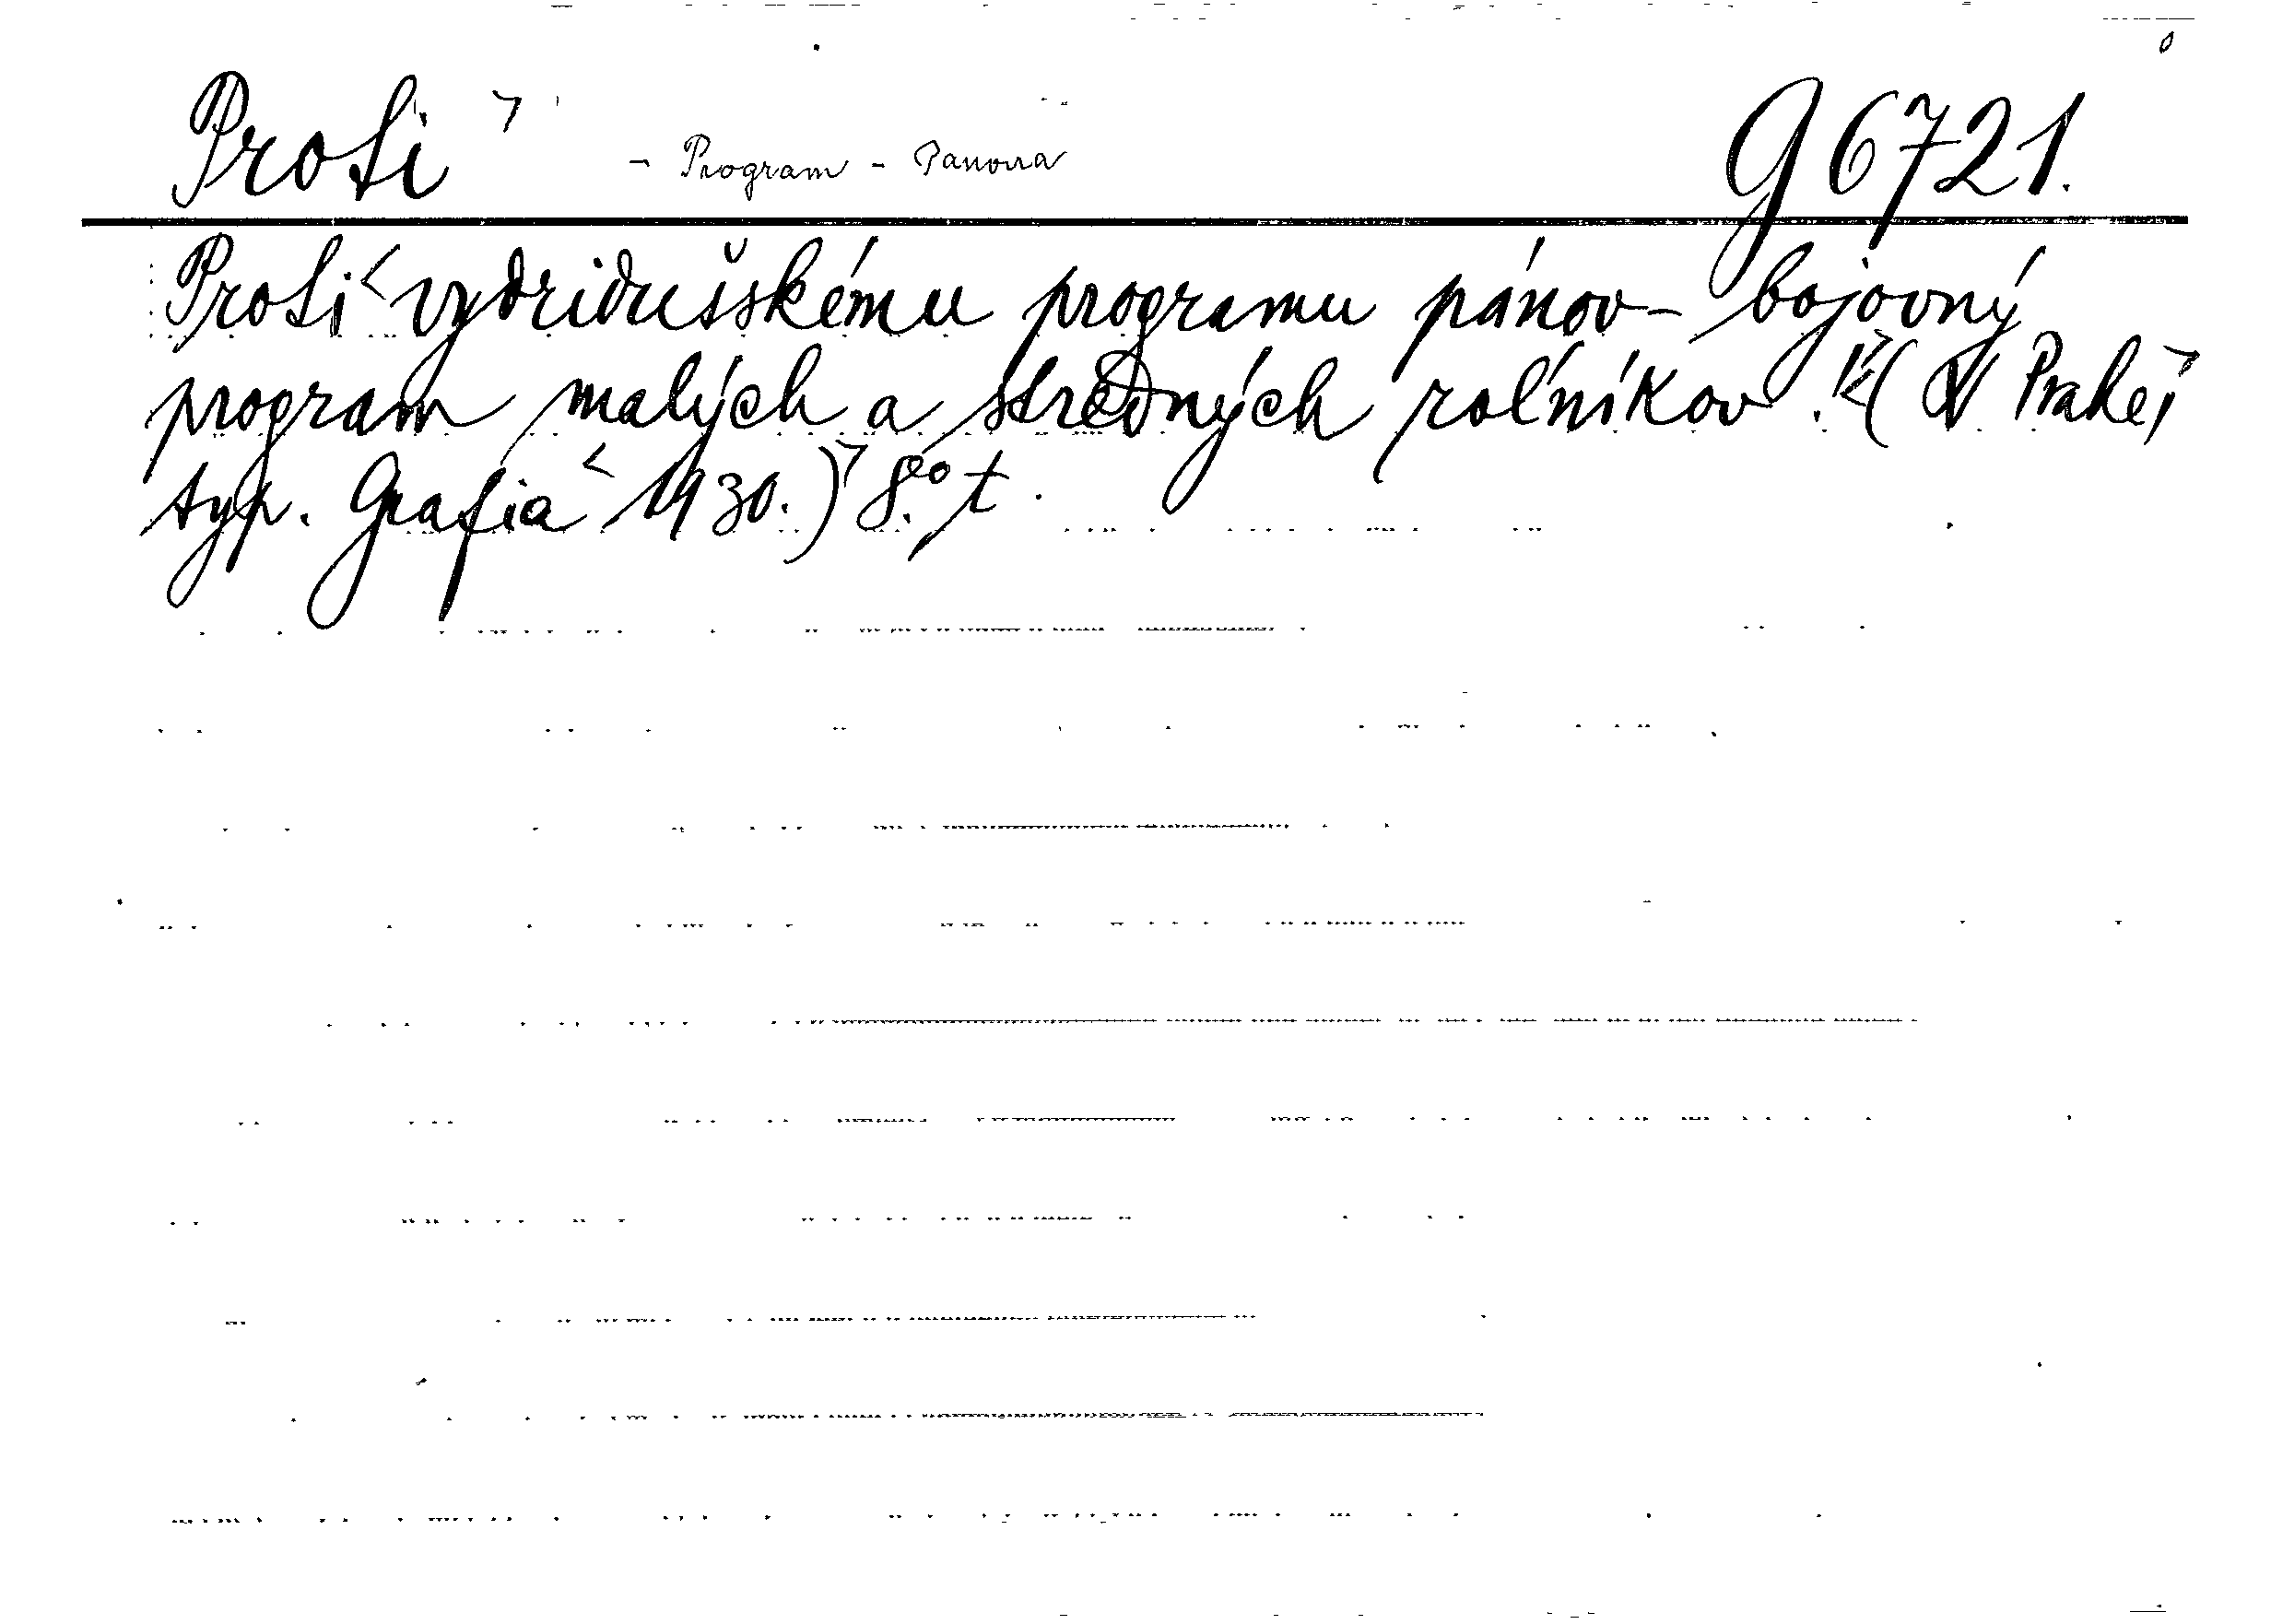 Proti - Program - Panova G 6721.
Proti vydridušskému programu pánov - bojovný
program malých a stredných roľníkov. (V Prahe,
typ. Grafia 1930.) 8° t.